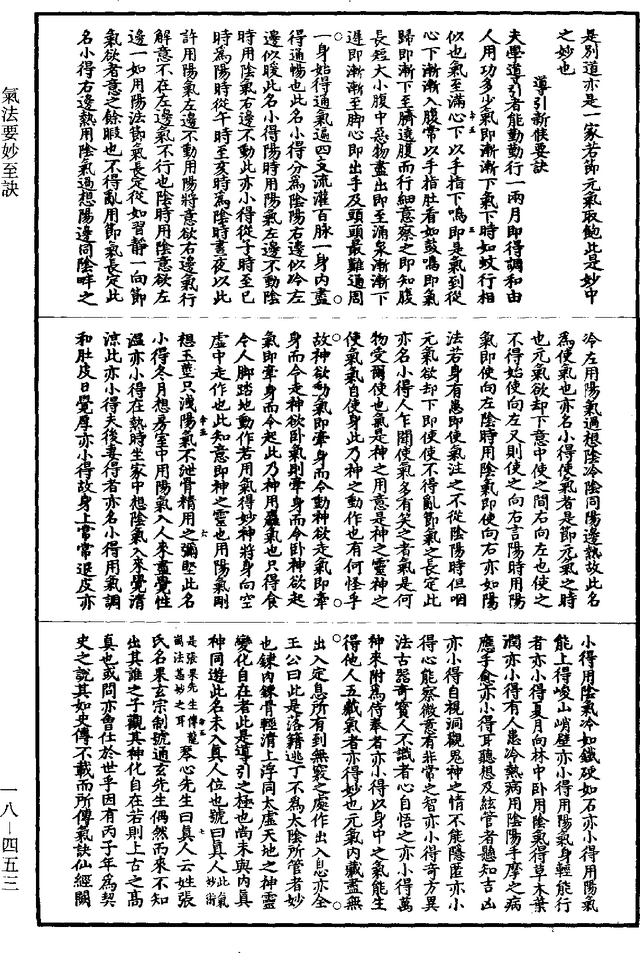 是別道亦是一家若節元氣取飽此是妙中
之妙也
導引新候要訣
夫學導引者能勤勤行一兩月即得調和由
人用功多少氣即漸漸下氣下時如蚊行相
似也氣至滿心下以手指下鳴即是氣到從
心下漸漸入腹常以手指肚看如鼓鳴即氣
歸即漸下至臍遶腹而行細意察之即知腹
長短大小腹中惡物盡出即至涌泉漸漸下
遲即漸漸至脚心即出手及頭頭最難通周
一身始得通氣遍四支流灌百脉一身內盡
得通暢也此名小得分為陰陽右邊似冷左
邊似暖此名小得陽時用陽氣左邊不動陰
時用陰氣右邊不動此亦小得從子時至巳
時為陽時從午時至亥時為陰時晝夜以此
許用陽氣左邊不動用陽時意欲右邊氣行
解意不在左邊氣不行也陰時用陰意欲左
邊一如用陽法節氣長定從如習靜一向節
氣欲者意之餘暇也不得亂用節氣長定此
名小得右邊熱用陰氣過想陽邊同陰畔之
冷左用陽氣過根陰冷陰同陽邊熱故此名
為使氣也亦名小得使氣者是即元氣之時
也元氣欲却下意中使之間右向左也使之
不得始使向左又則使之向右言陽時用陽
氣即使向左陰時用陰氣即使向右亦如陽
法若身有患即使氣注之不從陰陽時但咽
元氣欲却下即使使不得亂節氣之長定此
亦名小得人乍聞使氣多有笑之者氣是何
物受爾使也氣是神之用意是神之靈神之
使氣氣自使身此乃神之動作也有何怪乎
故神欲動氣即牽身而令動神欲走氣即牽
身而令走神欲卧氣則牽身而令卧神欲起
氣即牽身而令起此乃神用麤氣也只得食
令人脚踏地動作若用氣得妙神將身向空
虛中走作也此知意即神之靈也用陽氣剛
想玉莖只洩陽氣不泄骨精用之彌堅此名
小得冬月想房室中用陽氣入人來晝覺性
溫亦小得在熱時坐家中想陰氣入來覺清
涼此亦小得夫後妻得者亦名小得用氣調
和肚皮日覺厚亦小得故身上常常退皮亦
小得用陰氣冷如鐵硬如石亦小得用陽氣
能上得峻山峭壁亦小得用陽氣身輕能行
者亦小得夏月向林中卧用陰氣得草木葉
潤亦小得有人患冷熱病用陰陽手摩之病
應手愈亦小得耳聽想及絃管者懸知吉凶
亦小得自視洞觀鬼神之情不能隱匿亦小
得心能察微意有非常之智亦小得奇方異
法古器奇寶人不識者心自悟之亦小得萬
神來附為侍奉者亦小得以身中之氣能生
得他人五藏氣者亦得妙也元氣內藏盡無
出入定息所有到無竅之處作出入息亦全
王公曰此是落籍逃丁不為太陰所管者妙
也鍊內鍊骨輕清上浮同太虛天地之神靈
變化自在者此是導引之極也尚未與內真
神同遊此名未入真人位也號曰真人此氣妙術
是張果先生傳授此兩法甚妙之耳琴心先生曰真人云姓張
氏名果玄宗制號通玄先生偶然而來不知
出其誰之子觀其神化自在若則上古之高
真也或問亦曾仕於世乎因有丙子年為契
史之說其如史傳不載而所傳氣訣仙經闕
氣法要妙至訣
一八—四五三